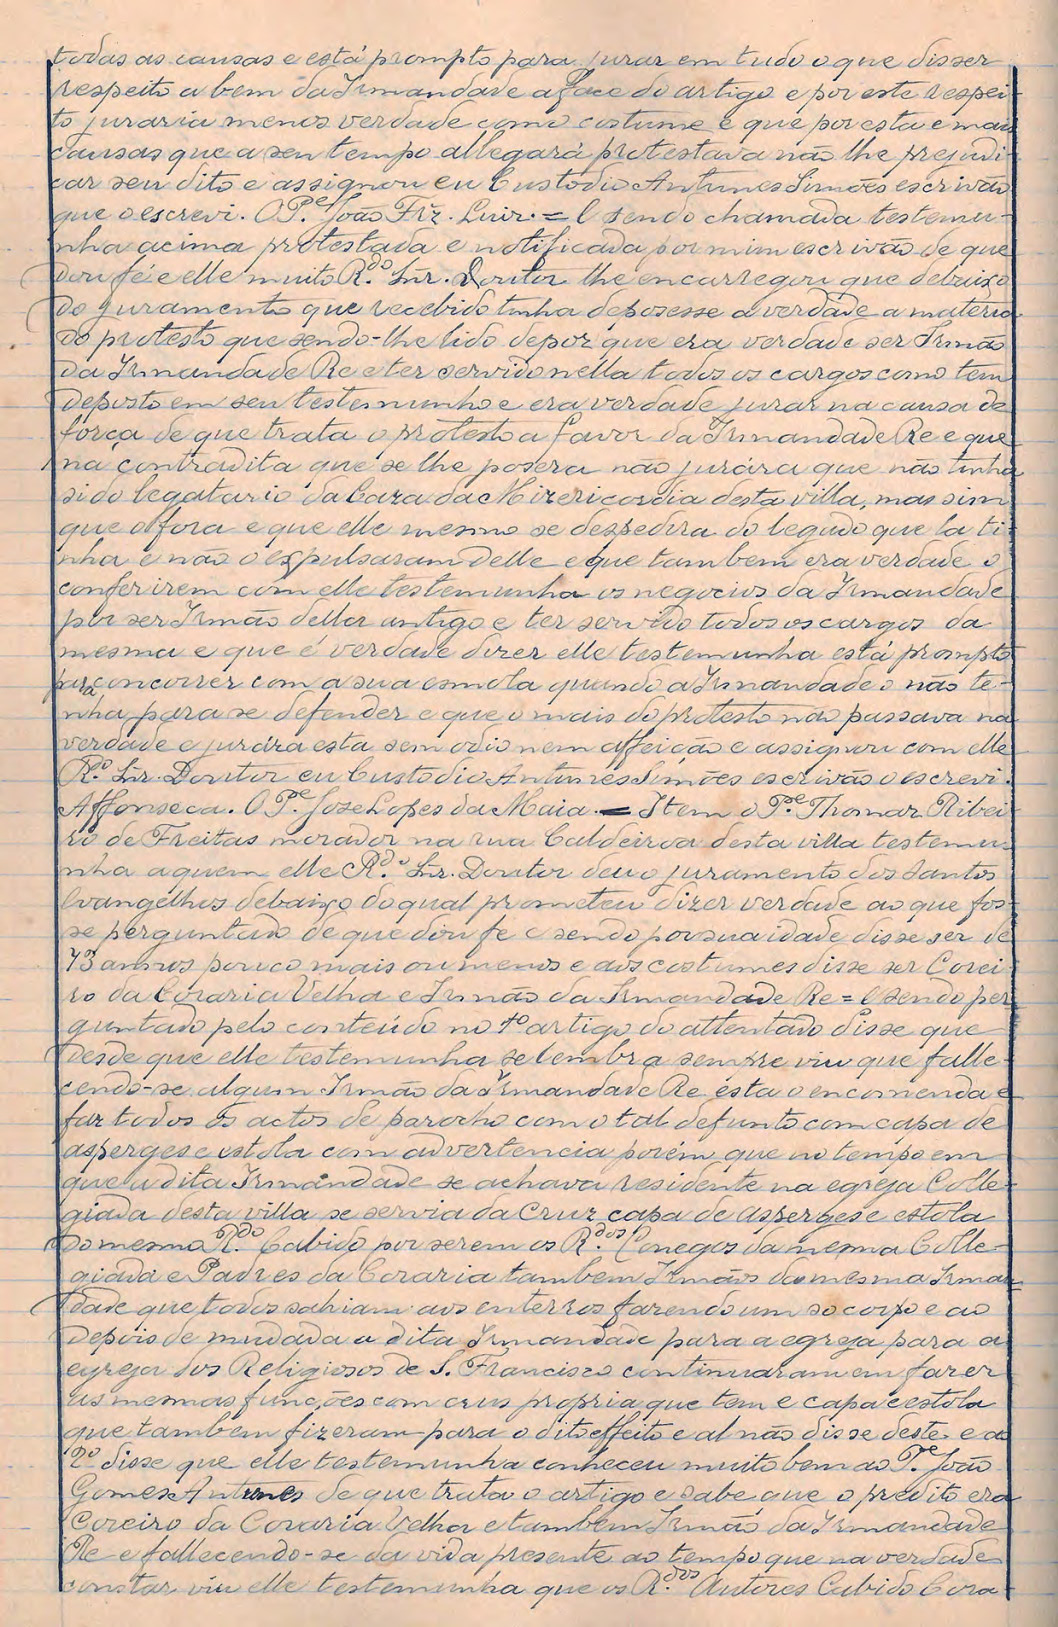 todas as causas e está prompto para jurar em tudo o que disser
respeito a bem da Irmandade a face do artigo e por este respei-
to juraria menos verdade como costume e que por esta e mais
causas que a seu tempo allegará protestava não lhe prejudi-
car seu dito e assignou eu Custodio Antunes Simões escrivão
que o escrevi. O P.e João Frz. Luiz. = E sendo chamada testemu-
nha acima protestada e notificada por mim escrivão de que
dou fé e elle muito R.do Snr. Doutor lhe encarregou que debaixo
do juramento que recebido tinha deposesse a verdade a materia
do protesto que sendo-lhe lido depoz que era verdade ser Irmão
da Irmandade Re e ter servido nella todos os cargos como tem
deposto em seu testemunho e era verdade jurar na causa de
força de que trata o protesto a favor da Irmandade Re e que
na contradita que se lhe posera não jurára que não tinha
sido legatario da Caza da Mizericordia desta villa, mas sim
que o fora e que elle mesmo se despedira do legado que la ti-
nha e não o expulsaram delle e que tambem era verdade o
conferirem com elle testemunha os negocios da Irmandade
por ser Irmão della antigo e ter servido todos os cargos da
mesma e que é verdade dizer elle testemunha está prompto
para concorrer com a sua esmola quando a Irmandade o não te-
nha para se defender e que o mais do protesto não passava na
verdade e jurára esta sem odio nem affeição e assignou com elle
R.o Snr. Doutor eu Custodio Antunes Simões escrivão o escrevi.
Affonseca. O P.e Jose Lopes da Maia. = Item o P.e Thomaz Ribei-
ro de Freitas morador na rua Caldeiroa desta villa testemu-
nha a quem elle R.do Snr. Doutor deu o juramento dos Santos
Evangelhos debaixo do qual prometeu dizer verdade ao que fos-
se perguntado de que dou fe e sendo por sua idade disse ser de
73 annos pouco mais ou menos e aos costumes disse ser Corei-
ro da Coraria Velha e Irmão da Irmandade Re = E sendo per-
guntado pelo conteúdo no 1º artigo do attentado disse que
desde que elle testemunha se lembra sempre viu que falle-
cendo-se algum Irmão da Irmandade Re esta o encomenda e
faz todos os actos de parocho com o tal defunto com capa de
asperges e estola com advertencia porém que no tempo em
que a dita Irmandade se achava residente na egreja Colle-
giada desta villa se servia da cruz capa de asperges e estola
do mesmo R.do Cabido por serem os R.dos Conegos da mesma Colle-
giada e Padres da Coraria tambem Irmãos da mesma Irman-
dade que todos sahiam aos enterros fazendo um so corpo e ao
depois de mudada a dita Irmandade para a egreja para a
egreja dos Religiosos de S. Francisco continuaram em fazer
as mesmas funcções com cruz propria que tem e capa e estola
que tambem fizeram para o dito effeito e al não disse deste e ao
2º disse que elle testemunha conheceu muito bem ao P.e João
Gomes Antunes de que trata o artigo e sabe que o predito era
Coreiro da Coraria Velha e tambem Irmão da Irmandade
Re e fallecendo-se da vida presente ao tempo que na verdade
constar viu elle testemunha que os R.dos Autores Cabido Cora-